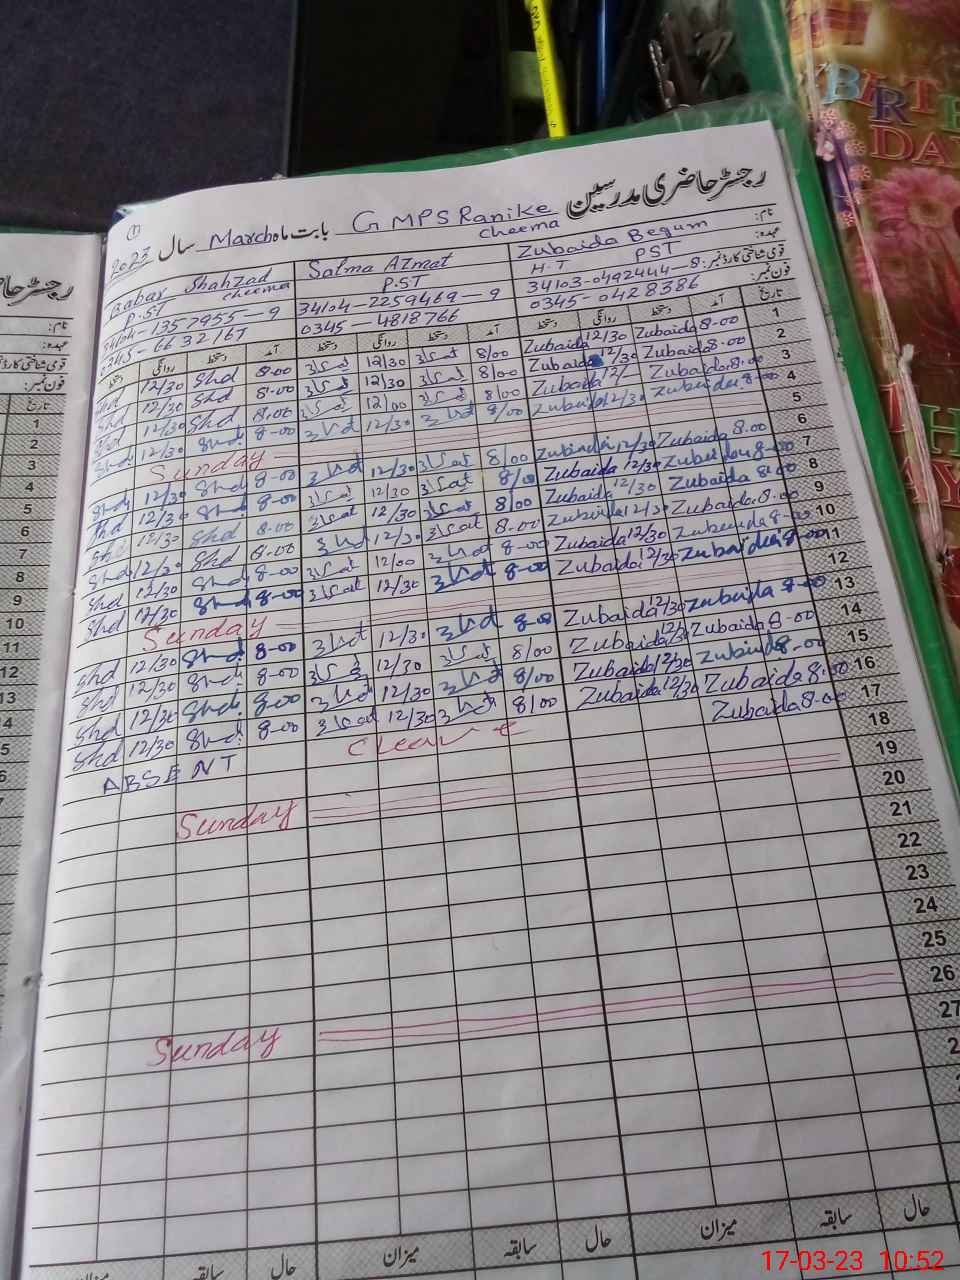 رجسٹر حاضری مدرسین
بابت ماہ March سال 2023 G MPS Ranike cheema
(1)
نام: Zubaida Begum Salma Azmat Babar Shahzad cheema
عہدہ: H.T PST P.ST P.ST
قومی شناختی کارڈ نمبر: 34103-0492444-8 34104-2259469-9 34104-1357955-9
فون نمبر: 0345-0428386 0345-4818766 0345-6632167
تاریخ آمد دستخط روانگی دستخط آمد دستخط روانگی دستخط آمد دستخط روانگی دستخط
1 8-00 Zubaida 12/30 Zubaida 8/00 12/30 8-00 Shd 12/30 Shd
2 8-00 Zubaida 12/30 Zubaida 8/00 12/30 8-00 Shd 12/30 Shd
3 8.00 Zubaida 12/ Zubaida 8/00 12/00 8.00 Shd 12/30 Shd
4 8-00 Zubaida 12/30 Zubaida 8/00 12/30 8-00 Shd 12/30 Shd
5 Sunday
6 8.00 Zubaida 12/30 Zubaida 8/00 12/30 8-00 Shd 12/30 Shd
7 8.00 Zubaida 12/30 Zubaida 8/00 12/30 8-00 Shd 12/30 Shd
8 8.00 Zubaida 12/30 Zubaida 8/00 12/30 8-00 Shd 12/30 Shd
9 8-00 Zubaida 12/30 Zubaida 8-00 12/30 8-00 Shd 12/30 Shd
10 8-00 Zubaida 12/30 Zubaida 8-00 12/00 8-00 Shd 12/30 Shd
11 8-00 Zubaida 12/30 Zubaida 8-00 12/30 8-00 Shd 12/30 Shd
12 Sunday
13 8-00 Zubaida 12/30 Zubaida 8-00 12/30 8-00 Shd 12/30 Shd
14 8-00 Zubaida 12/ Zubaida 8/00 12/30 8-00 Shd 12/30 Shd
15 8-00 Zubaida 12/30 Zubaida 8/00 12/30 8-00 Shd 12/30 Shd
16 8-00 Zubaida 12/30 Zubaida 8/00 12/30 8-00 Shd 12/30 Shd
17 8-00 Zubaida Cleave ABSENT
18
19 Sunday
20
21
22
23
24
25
26 Sunday
27
حال سابقہ میزان حال سابقہ میزان حال سابقہ میزان
رجسٹر حا
نام:
عہدہ:
قومی شناختی کارڈ
فون نمبر:
تاریخ
1
2
3
4
5
6
7
8
9
10
11
12
13
BIRTH
DA
TH
AY
17-03-23 10:52